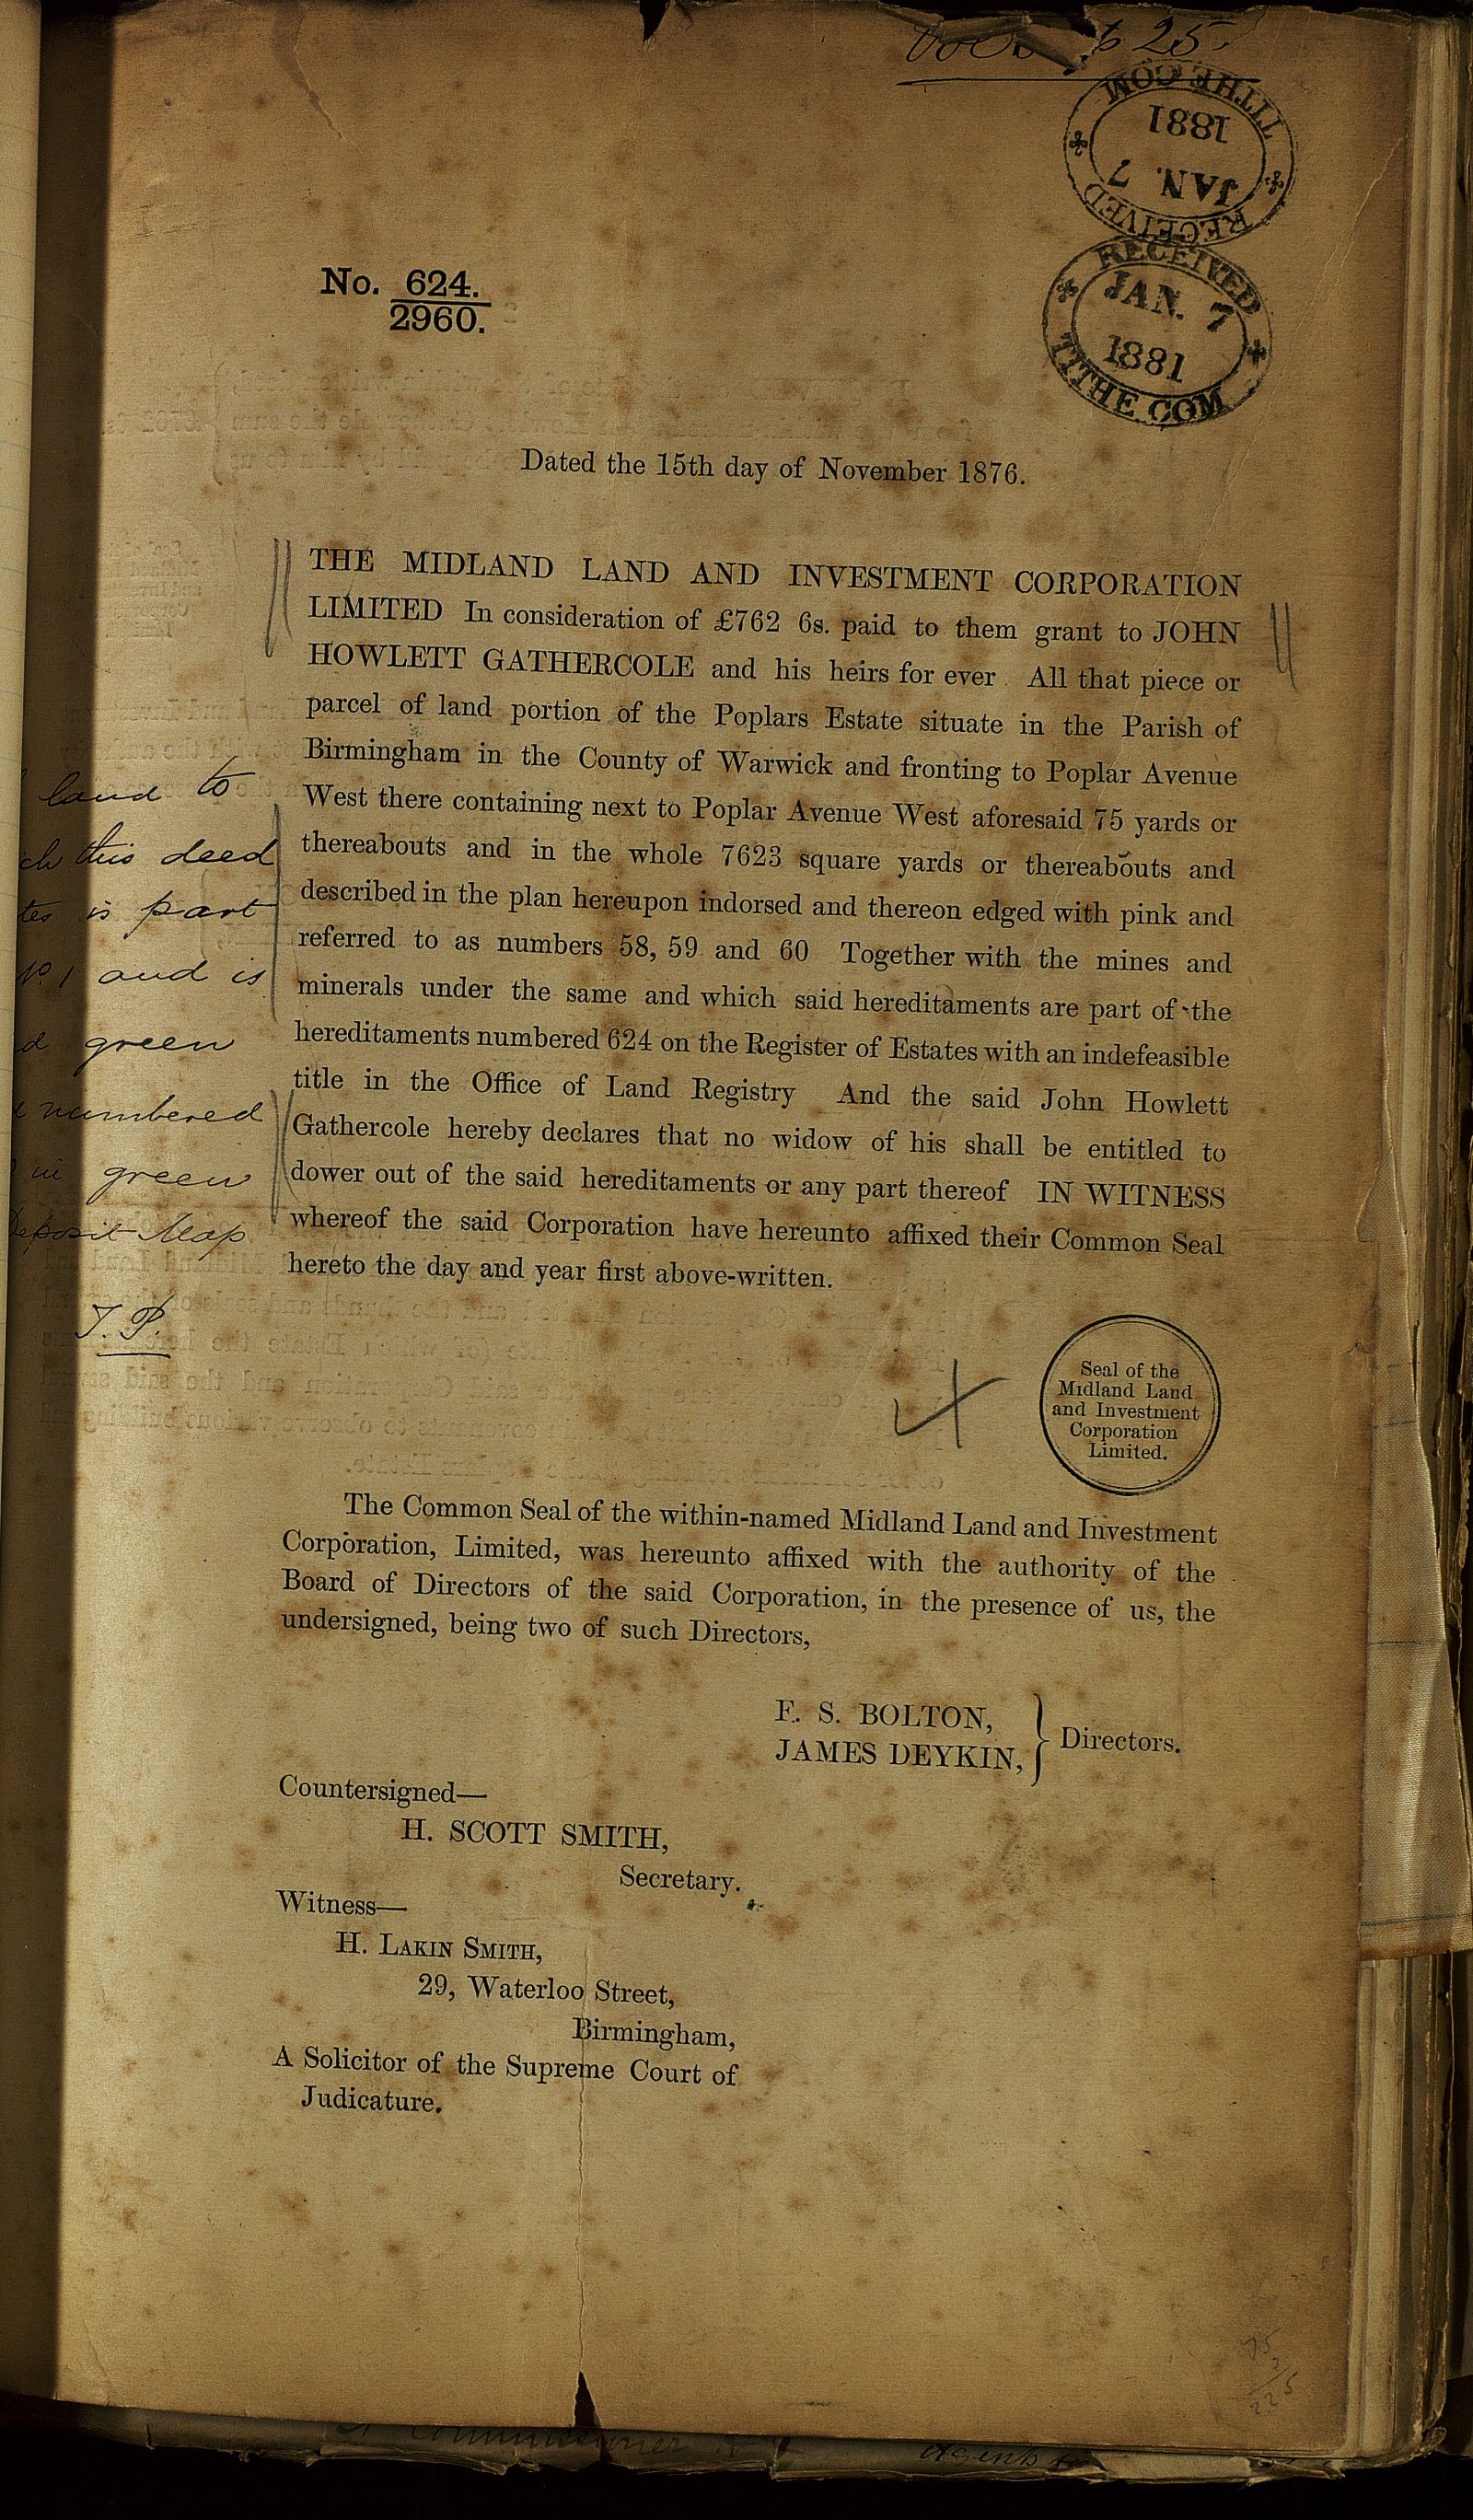 25.
RECEIVED
JAN. 7
1881
TITHE COM
RECEIVED
JAN. 7
1881
TITHE COM
No. 624.
2960.
Dated the 15th day of November 1876.
THE MIDLAND LAND AND INVESTMENT CORPORATION
LIMITED In consideration of £762 6s. paid to them grant to JOHN
HOWLETT GATHERCOLE and his heirs for ever All that piece or
parcel of land portion of the Poplars Estate situate in the Parish of
Birmingham in the County of Warwick and fronting to Poplar Avenue
West there containing next to Poplar Avenue West aforesaid 75 yards or
thereabouts and in the whole 7623 square yards or thereabouts and
described in the plan hereupon indorsed and thereon edged with pink and
referred to as numbers 58, 59 and 60 Together with the mines and
minerals under the same and which said hereditaments are part of the
hereditaments numbered 624 on the Register of Estates with an indefeasible
title in the Office of Land Registry And the said John Howlett
Gathercole hereby declares that no widow of his shall be entitled to
dower out of the said hereditaments or any part thereof IN WITNESS
whereof the said Corporation have hereunto affixed their Common Seal
hereto the day and year first above-written.
land to
this deed
is part
No. 1 and is
green
numbered
in green
Deposit Map
T. P.
Seal of the
Midland Land
and Investment
Corporation
Limited.
The Common Seal of the within-named Midland Land and Investment
Corporation, Limited, was hereunto affixed with the authority of the
Board of Directors of the said Corporation, in the presence of us, the
undersigned, being two of such Directors,
F. S. BOLTON,
JAMES DEYKIN,
Directors.
Countersigned—
H. SCOTT SMITH,
Secretary.
Witness—
H. LAKIN SMITH,
29, Waterloo Street,
Birmingham,
A Solicitor of the Supreme Court of
Judicature.
75
3
225